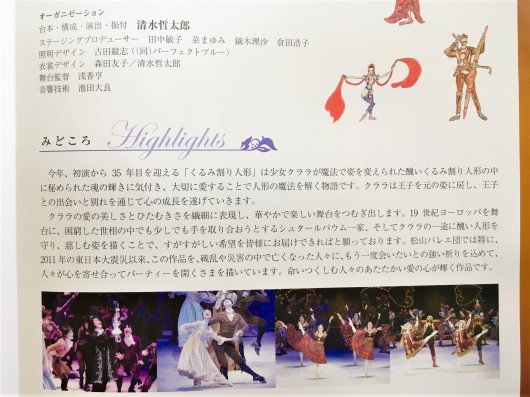 オーガニゼーション
台本・構成・演出・振付 清水哲太郎
ステージングプロデューサー 田中敏子 朶まゆみ 鏑木理沙 倉田浩子
照明デザイン 古田毅志((同)パーフェクトブルー)
衣裳デザイン 森田友子/清水哲太郎
舞台監督 浅香亨
音響技術 池田大良
みどころ Highlights
今年、初演から 35 年目を迎える「くるみ割り人形」は少女クララが魔法で姿を変えられた醜いくるみ割り人形の中
に秘められた魂の輝きに気付き、大切に愛することで人形の魔法を解く物語です。クララは王子を元の姿に戻し、王子
との出会いと別れを通じて心の成長を遂げていきます。
クララの愛の美しさとひたむきさを繊細に表現し、華やかで楽しい舞台をつむぎ出します。19 世紀ヨーロッパを舞
台に、困窮した世相の中でも少しでも手を取り合おうとするシュタールバウム一家、そしてクララの一途に醜い人形を
守り、慈しむ姿を描くことで、すがすがしい希望を皆様にお届けできればと願っております。松山バレエ団では特に、
2011 年の東日本大震災以来、この作品を、戦乱や災害の中で亡くなった人々に、もう一度会いたいとの強い祈りを込めて、
人々が心を寄せ合ってパーティーを開くさまを描いています。命いつくしむ人々のあたたかい愛の心が輝く作品です。